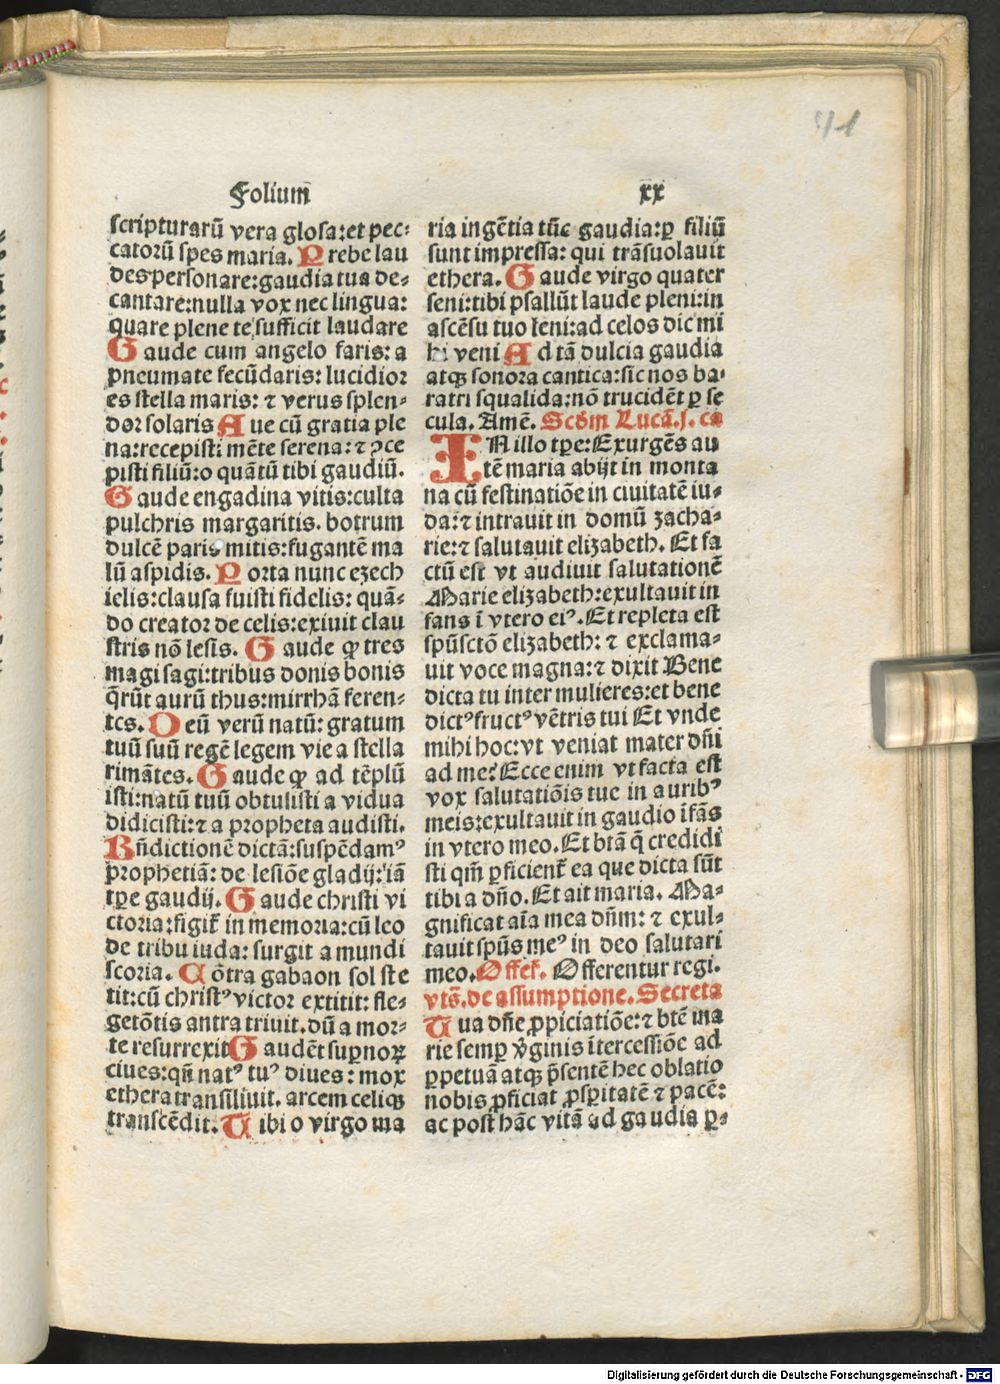 Folium̄ xx
scripturarū vera glosa:et pec-
catorū spes maria. Prebe lau
des personare:gaudia tua de-
cantare:nulla vox nec lingua:
quare plene te sufficit laudare
Gaude cum angelo faris: a
pneumate fecūdaris: lucidior
es stella maris: ⁊ verus splen-
dor solaris Aue cū gratia ple
na:recepisti mēte serena:⁊ ꝯce
pisti filiū:o quātū tibi gaudiū.
Gaude engadina vitis:culta
pulchris margaritis. botrum
dulcē paris mitis:fugantē ma
lū aspidis. Porta nunc ezech
ielis:clausa fuisti fidelis: quā-
do creator de celis:exiuit clau
stris nō lesis. Gaude ꝙ tres
magi sagi:tribus donis bonis
q̄rūt aurū thus:mirrhā feren-
tes. Deū verū natū: gratum
tuū suū regē legem vie a stella
rimātes. Gaude ꝙ ad tēplū
isti:natū tuū obtulisti a vidua
didicisti:⁊ a propheta audisti.
Bn̄dictionē dictā:suspēdamꝰ
prophetiā: de lesiōe gladij:iā
tꝑe gaudij. Gaude christi vi
ctoria:figit̄ in memoria:cū leo
de tribu iuda: surgit a mundi
scoria. Cōtra gabaon sol ste
tit:cū christꝰ victor extitit: fle-
getōtis antra triuit.dū a mor-
te resurrexit Gaudēt suꝑnoꝝ
ciues:qn̄ natꝰ tuꝰ diues: mox
ethera transiliuit. arcem celiqꝫ
transcēdit. Tibi o virgo ma
ria ingētia tūc gaudia:ꝑ filiū
sunt impressa: qui trāsuolauit
ethera. Gaude virgo quater
seni:tibi psallūt laude pleni:in
ascēsu tuo leni:ad celos dic mi
hi veni Ad tā dulcia gaudia
atqꝫ sonora cantica:sic nos ba-
ratri squalida:nō trucidēt ꝑ se
cula. Amē. Scḋm Lucā.j. ca
IN illo tꝑe:Exurgēs au
tē maria abijt in monta
na cū festinatiōe in ciuitatē iu-
da:⁊ intrauit in domū zacha-
rie:⁊ salutauit elizabeth. Et fa
ctū est vt audiuit salutationē
Marie elizabeth:exultauit in
fans ī vtero eiꝰ. Et repleta est
spūsctō elizabeth: ⁊ exclama-
uit voce magna:⁊ dixit Bene
dicta tu inter mulieres:et bene
dictꝰ fructꝰ vētris tui Et vnde
mihi hoc:vt veniat mater dn̄i
ad me? Ecce enim vt facta est
vox salutatiōis tue in auribꝰ
meis:exultauit in gaudio īfās
in vtero meo. Et btā q̄ credidi
sti qm̄ ꝑficient̄ ea que dicta sūt
tibi a dn̄o. Et ait maria. Ma-
gnificat aīa mea dn̄m: ⁊ exul-
tauit spūs meꝰ in deo salutari
meo. Offer̄. Offerentur regi.
vts̄.de assumptione. Secreta
Tua dn̄e ꝓpiciatiōe:⁊ btē ma
rie semꝑ v̄ginis ītercessiōe ad
ꝑpetuā atqꝫ p̄sentē hec oblatio
nobis ꝓficiat ꝓsꝑitatē ⁊ pacē:
ac post hāc vitā ad gaudia ꝑ-
Digitalisierung gefördert durch die Deutsche Forschungsgemeinschaft - DFG